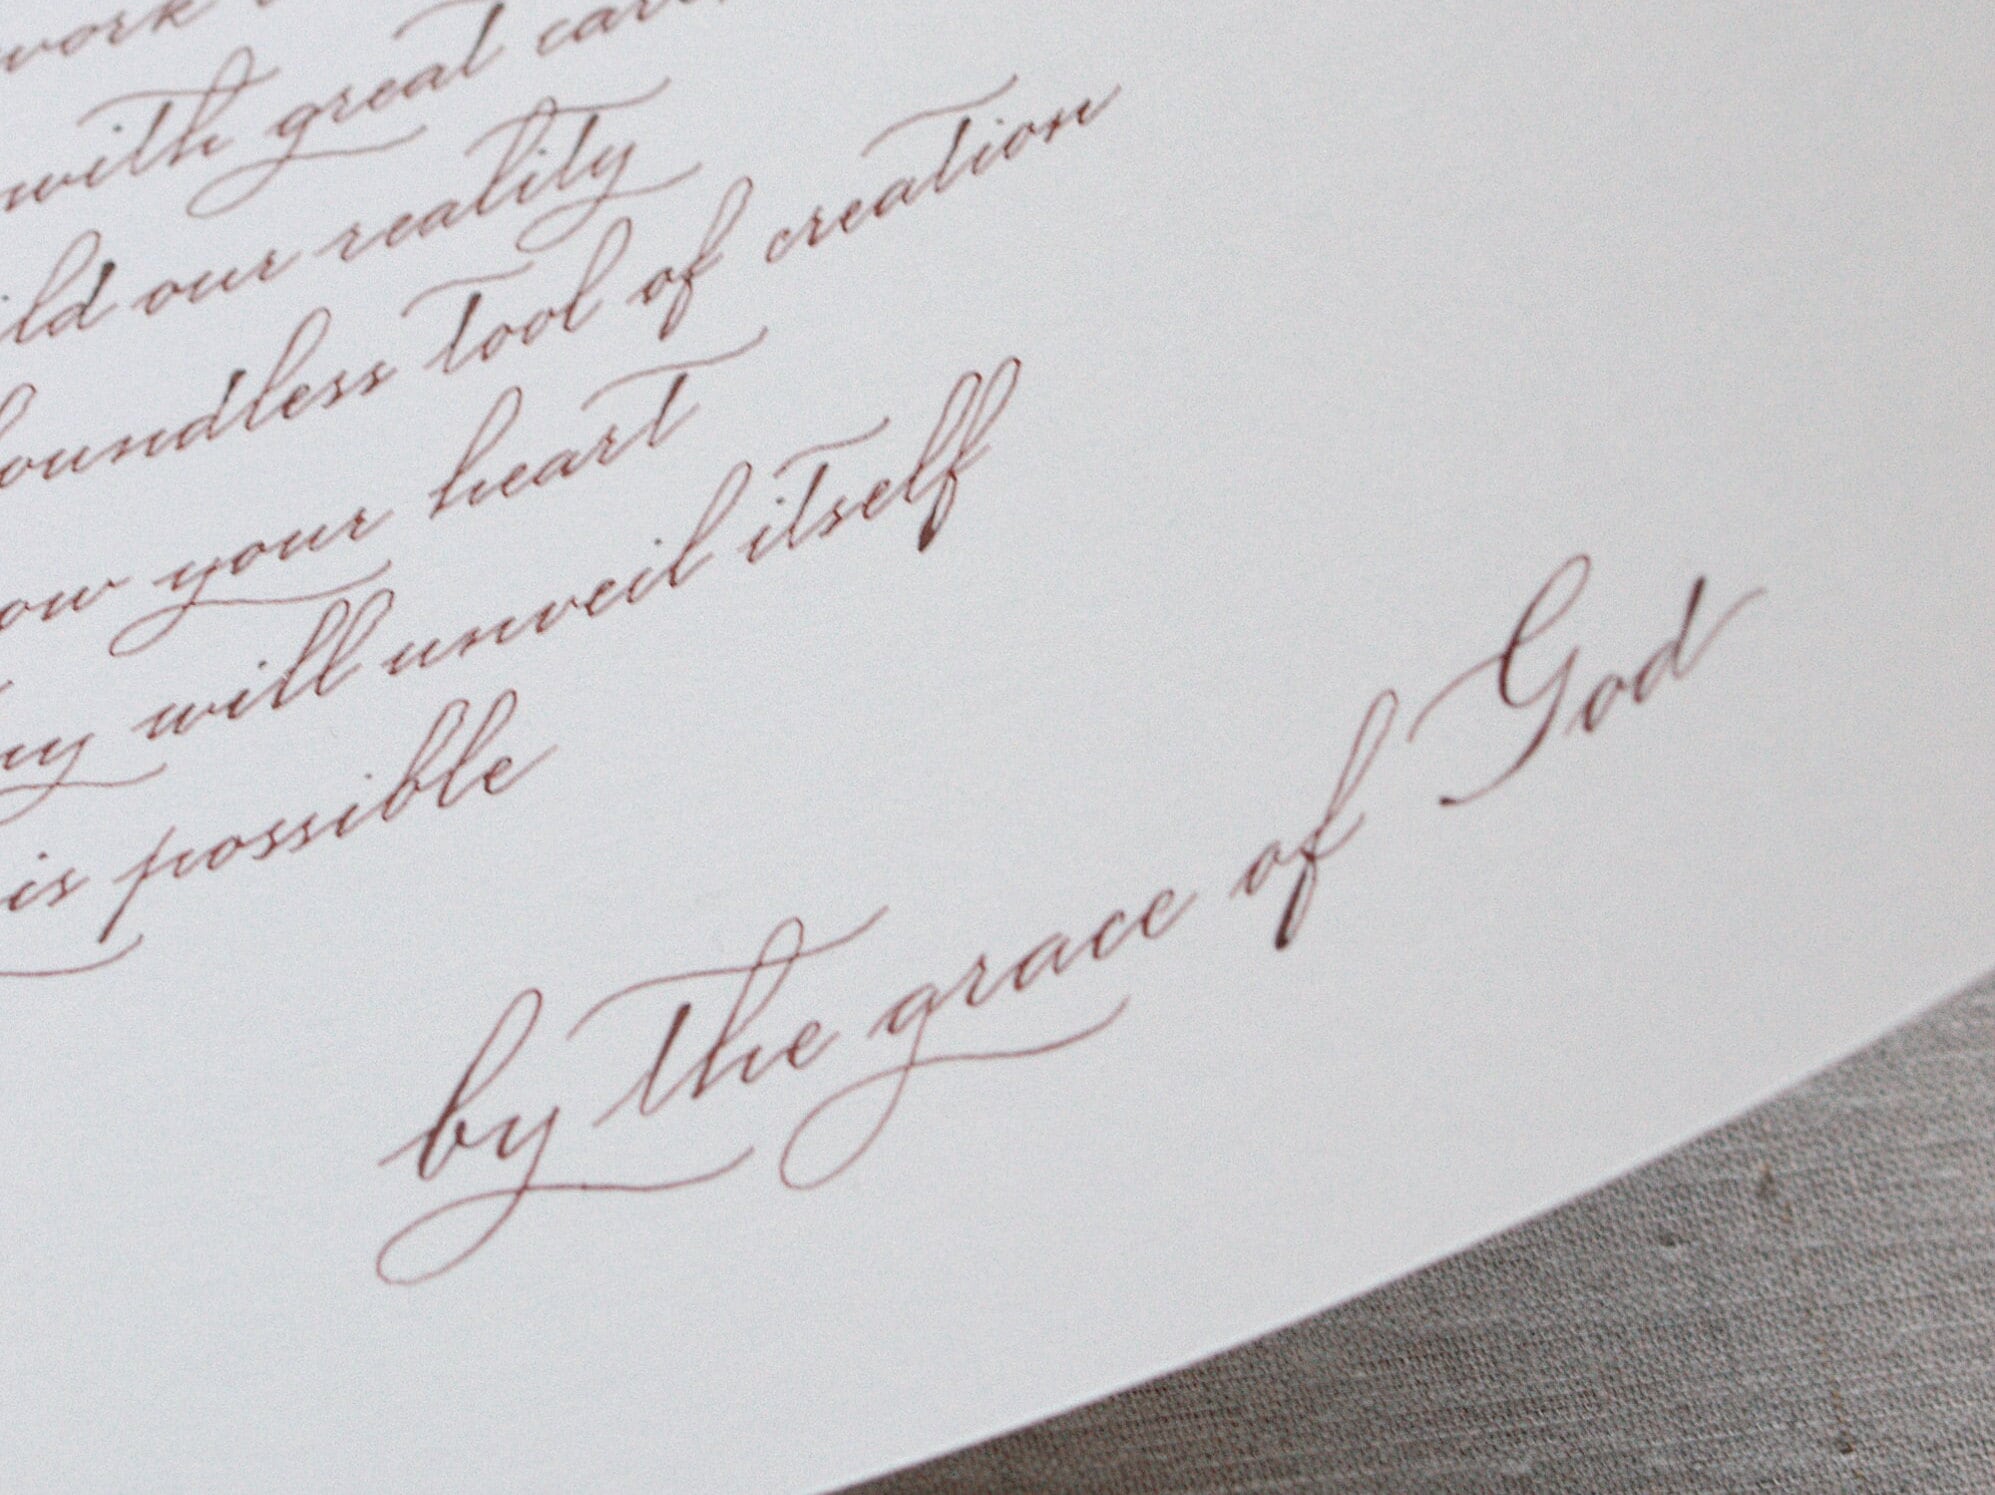 work
with great care
ild our reality
oundless tool of creation
ow your heart
ny will unveil itself
is possible
by the grace of God